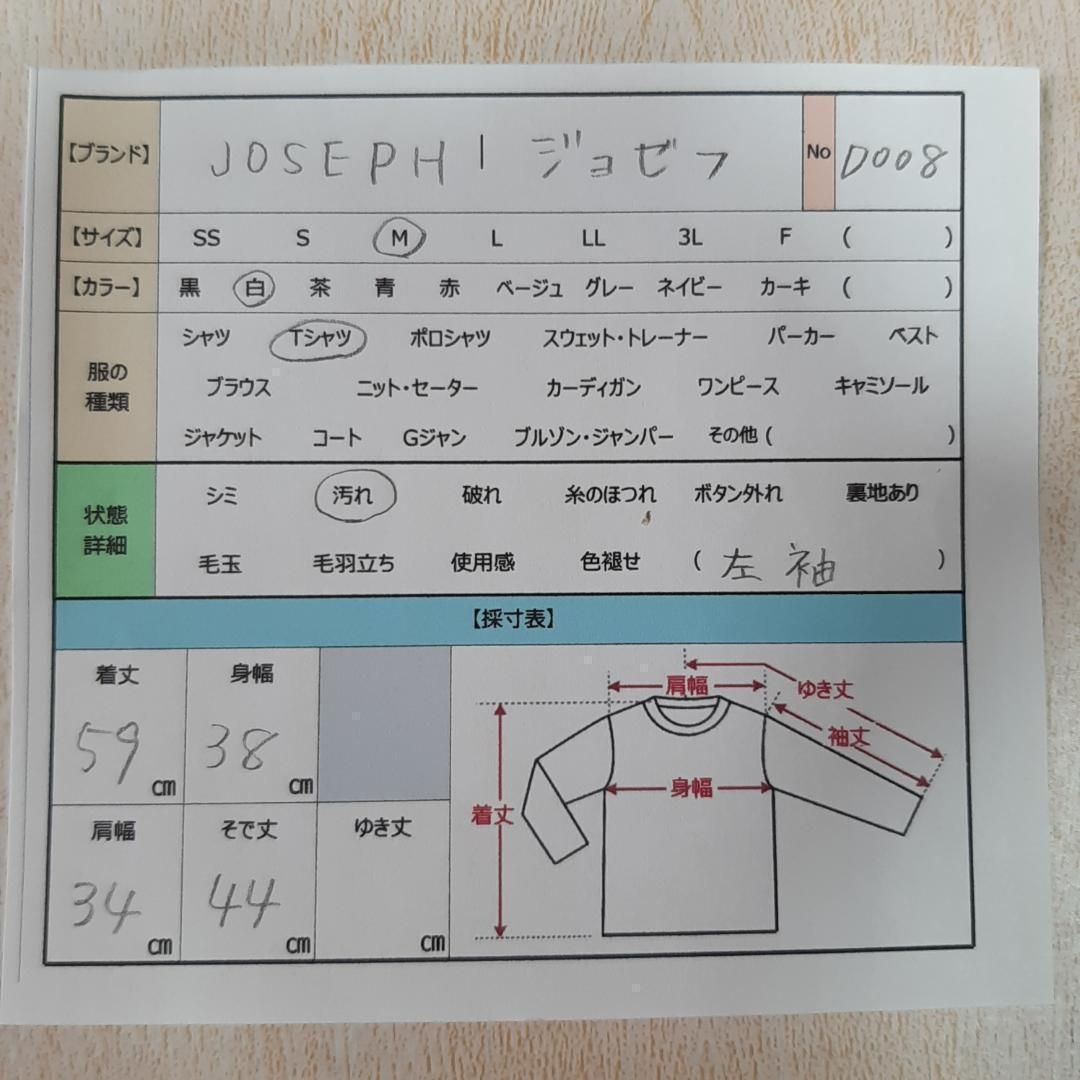 【ブランド】 JOSEPH | ジョゼフ No D008
【サイズ】 SS S M L LL 3L F ( )
【カラー】 黒 白 茶 青 赤 ベージュ グレー ネイビー カーキ ( )
服の種類
シャツ Tシャツ ポロシャツ スウェット・トレーナー パーカー ベスト
ブラウス ニット・セーター カーディガン ワンピース キャミソール
ジャケット コート Gジャン ブルゾン・ジャンパー その他 ( )
状態詳細
シミ 汚れ 破れ 糸のほつれ ボタン外れ 裏地あり
毛玉 毛羽立ち 使用感 色褪せ ( 左袖 )
【採寸表】
着丈 身幅
59 cm 38 cm
肩幅 そで丈 ゆき丈
34 cm 44 cm cm
肩幅
ゆき丈
袖丈
身幅
着丈